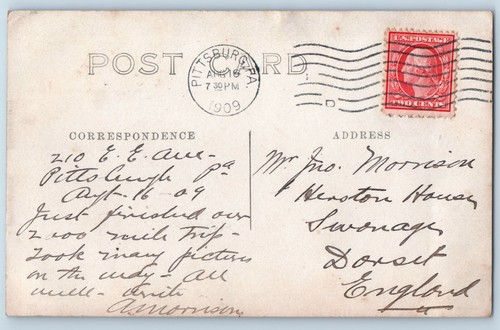 POST CARD
PITTSBURG, PA.
AUG 16
7 30 PM
1909
D
U.S. POSTAGE
TWO CENTS
CORRESPONDENCE
210 E. E. Ave-
Pittsburgh Pa
Augt-16-09
Just finished our
2000 mile trip-
Took many pictures
on the way- All
well- write
A Morrison
ADDRESS
Mr Jno. Morrison
Herston House
Swanage
Dorset
England